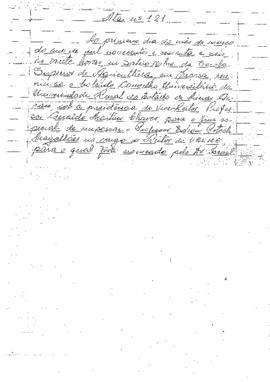 Ata nº 121
Ao primeiro dia do mês de março
do ano de mil novecentos e sessenta e um,
às vinte horas, no Salão Nobre da Escola
Superior de Agricultura, em Viçosa, reu-
niu-se o Conselho Universitário da
Universidade Rural do Estado de Minas Ge-
rais, sob a presidência do Vice-Reitor, Profes-
sor Geraldo Martins Chaves, para o fim es-
pecial de empossar o Professor Edson Potsch
Magalhães no cargo de Reitor da UREMG
para o qual fora nomeado pelo